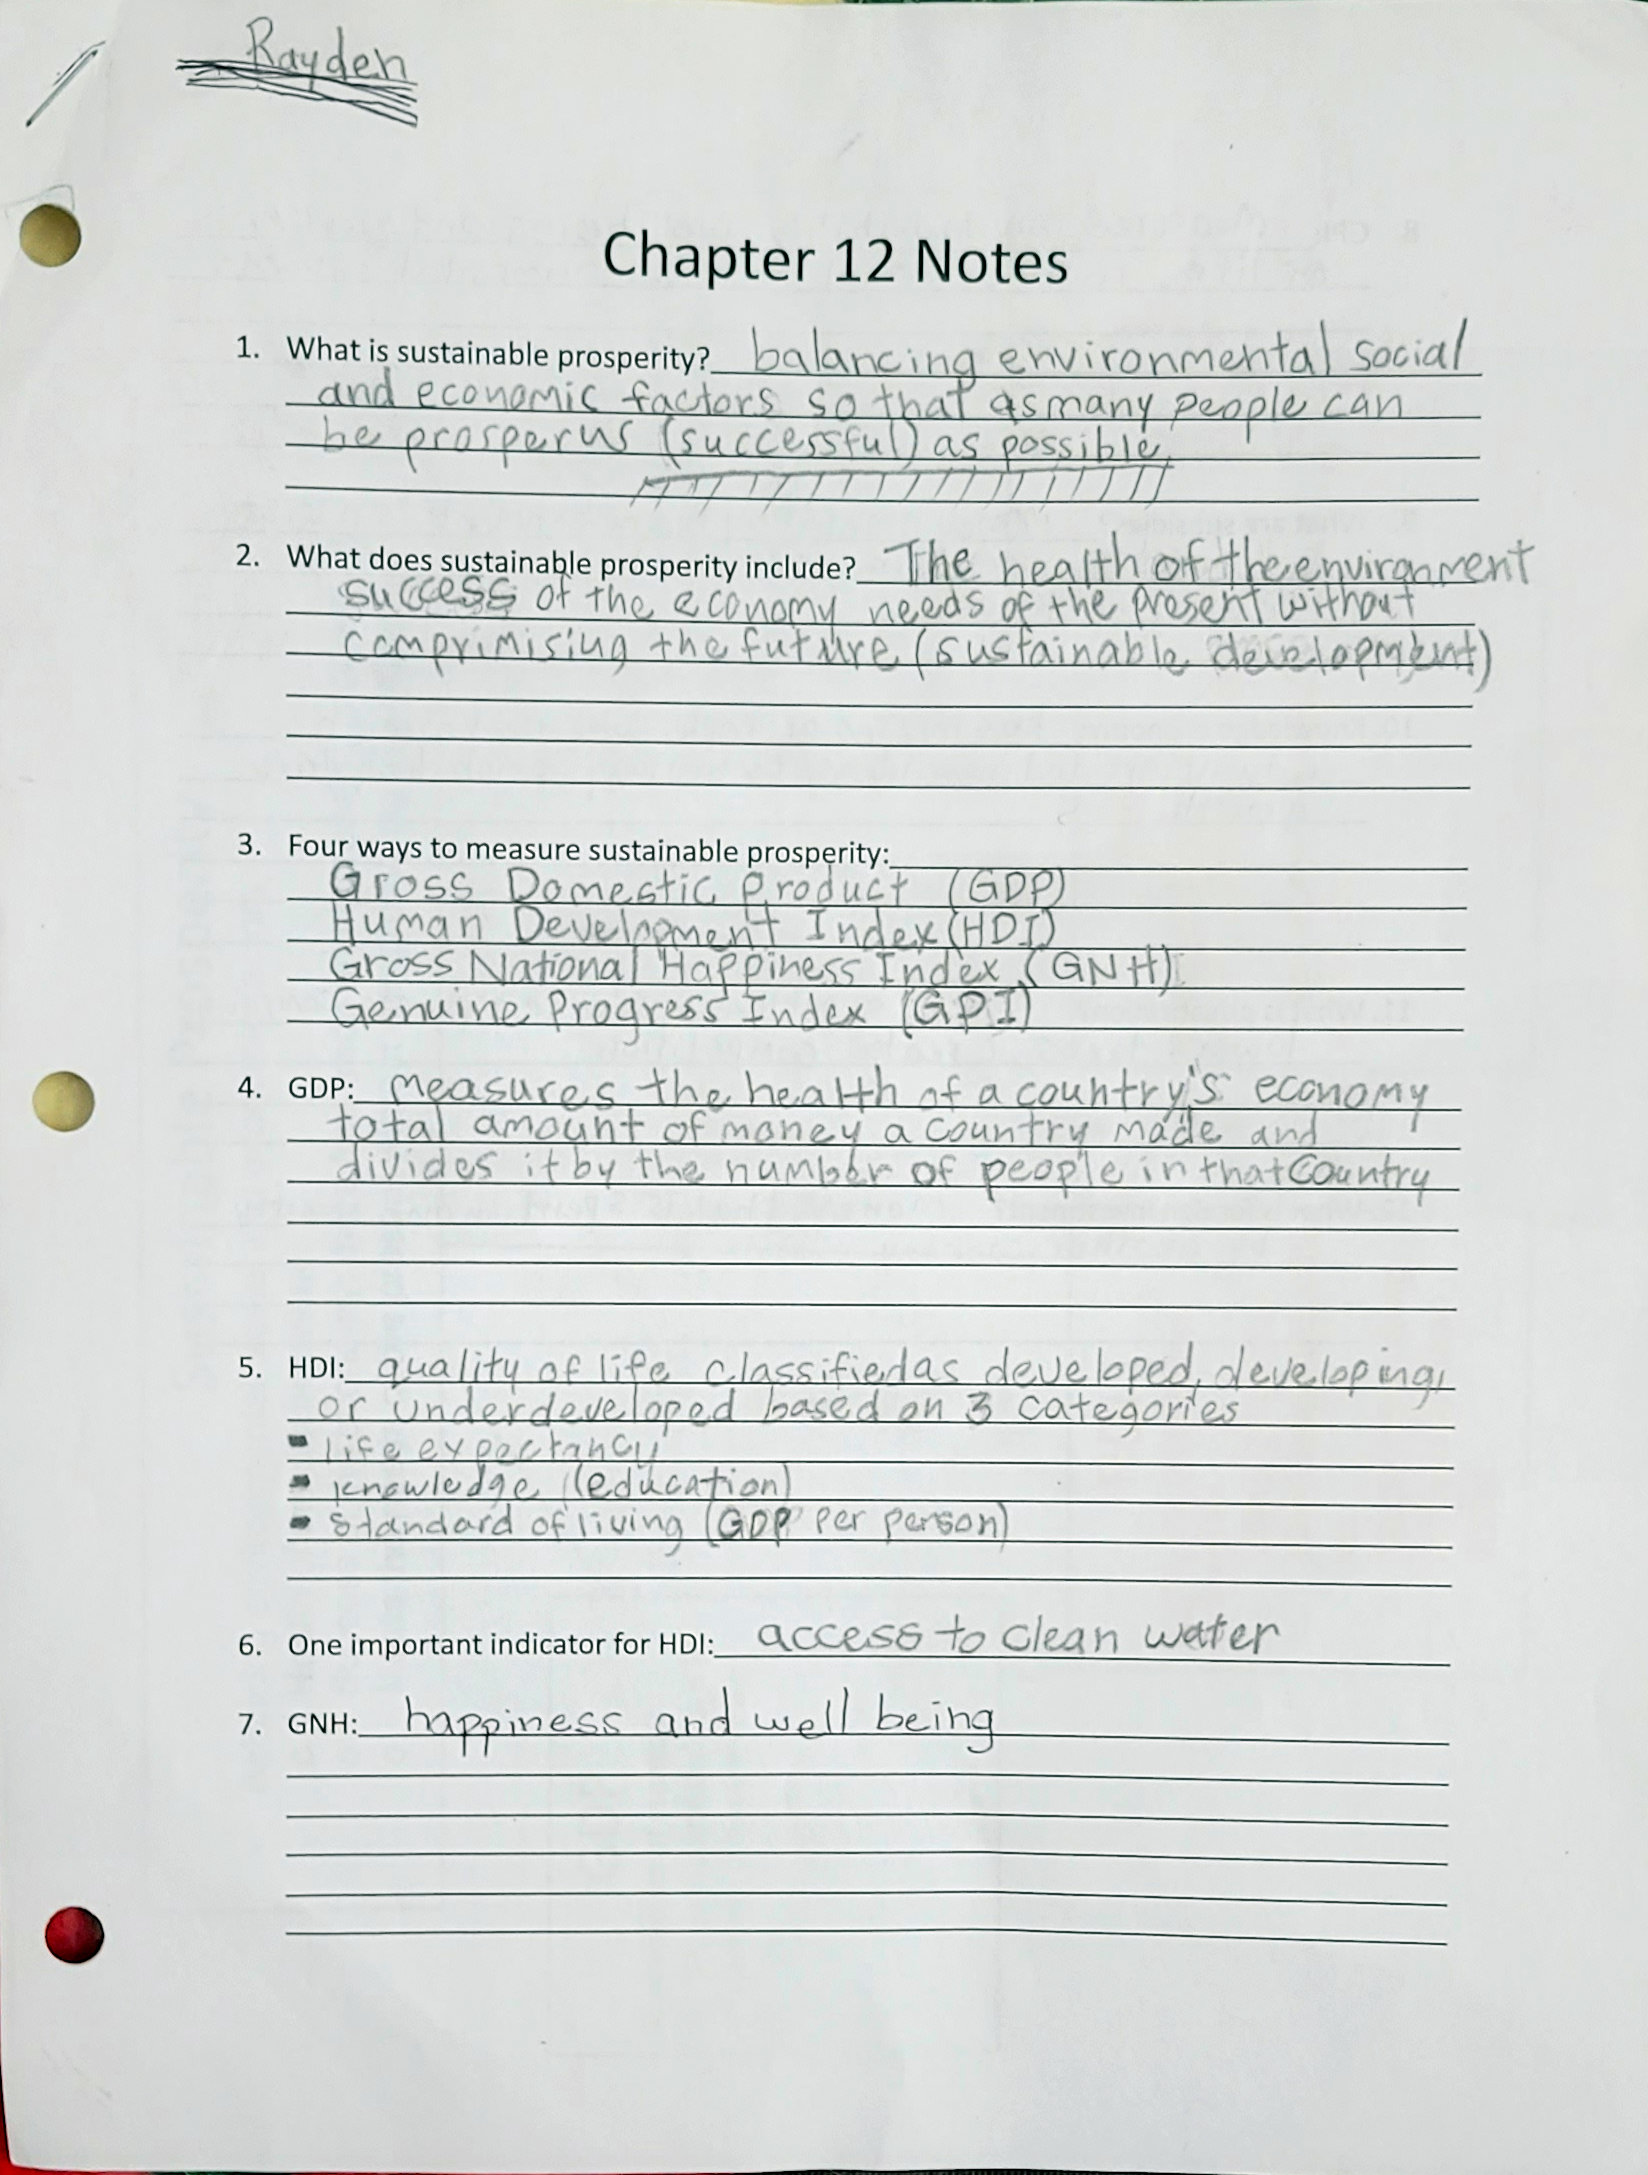 Rayden
Chapter 12 Notes
1. What is sustainable prosperity? balancing environmental social
and economic factors so that as many people can
be prosperus (successful) as possible
2. What does sustainable prosperity include? The health of the environment
success of the economy needs of the present without
comprimising the future (sustainable development)
3. Four ways to measure sustainable prosperity:
Gross Domestic Product (GDP)
Human Development Index (HDI)
Gross National Happiness Index (GNH)
Genuine Progress Index (GPI)
4. GDP: measures the health of a country's economy
total amount of money a country made and
divides it by the number of people in that Country
5. HDI: quality of life classified as developed, developing,
or underdeveloped based on 3 categories
- life expectancy
- knowledge (education)
- standard of living (GDP per person)
6. One important indicator for HDI: access to clean water
7. GNH: happiness and well being